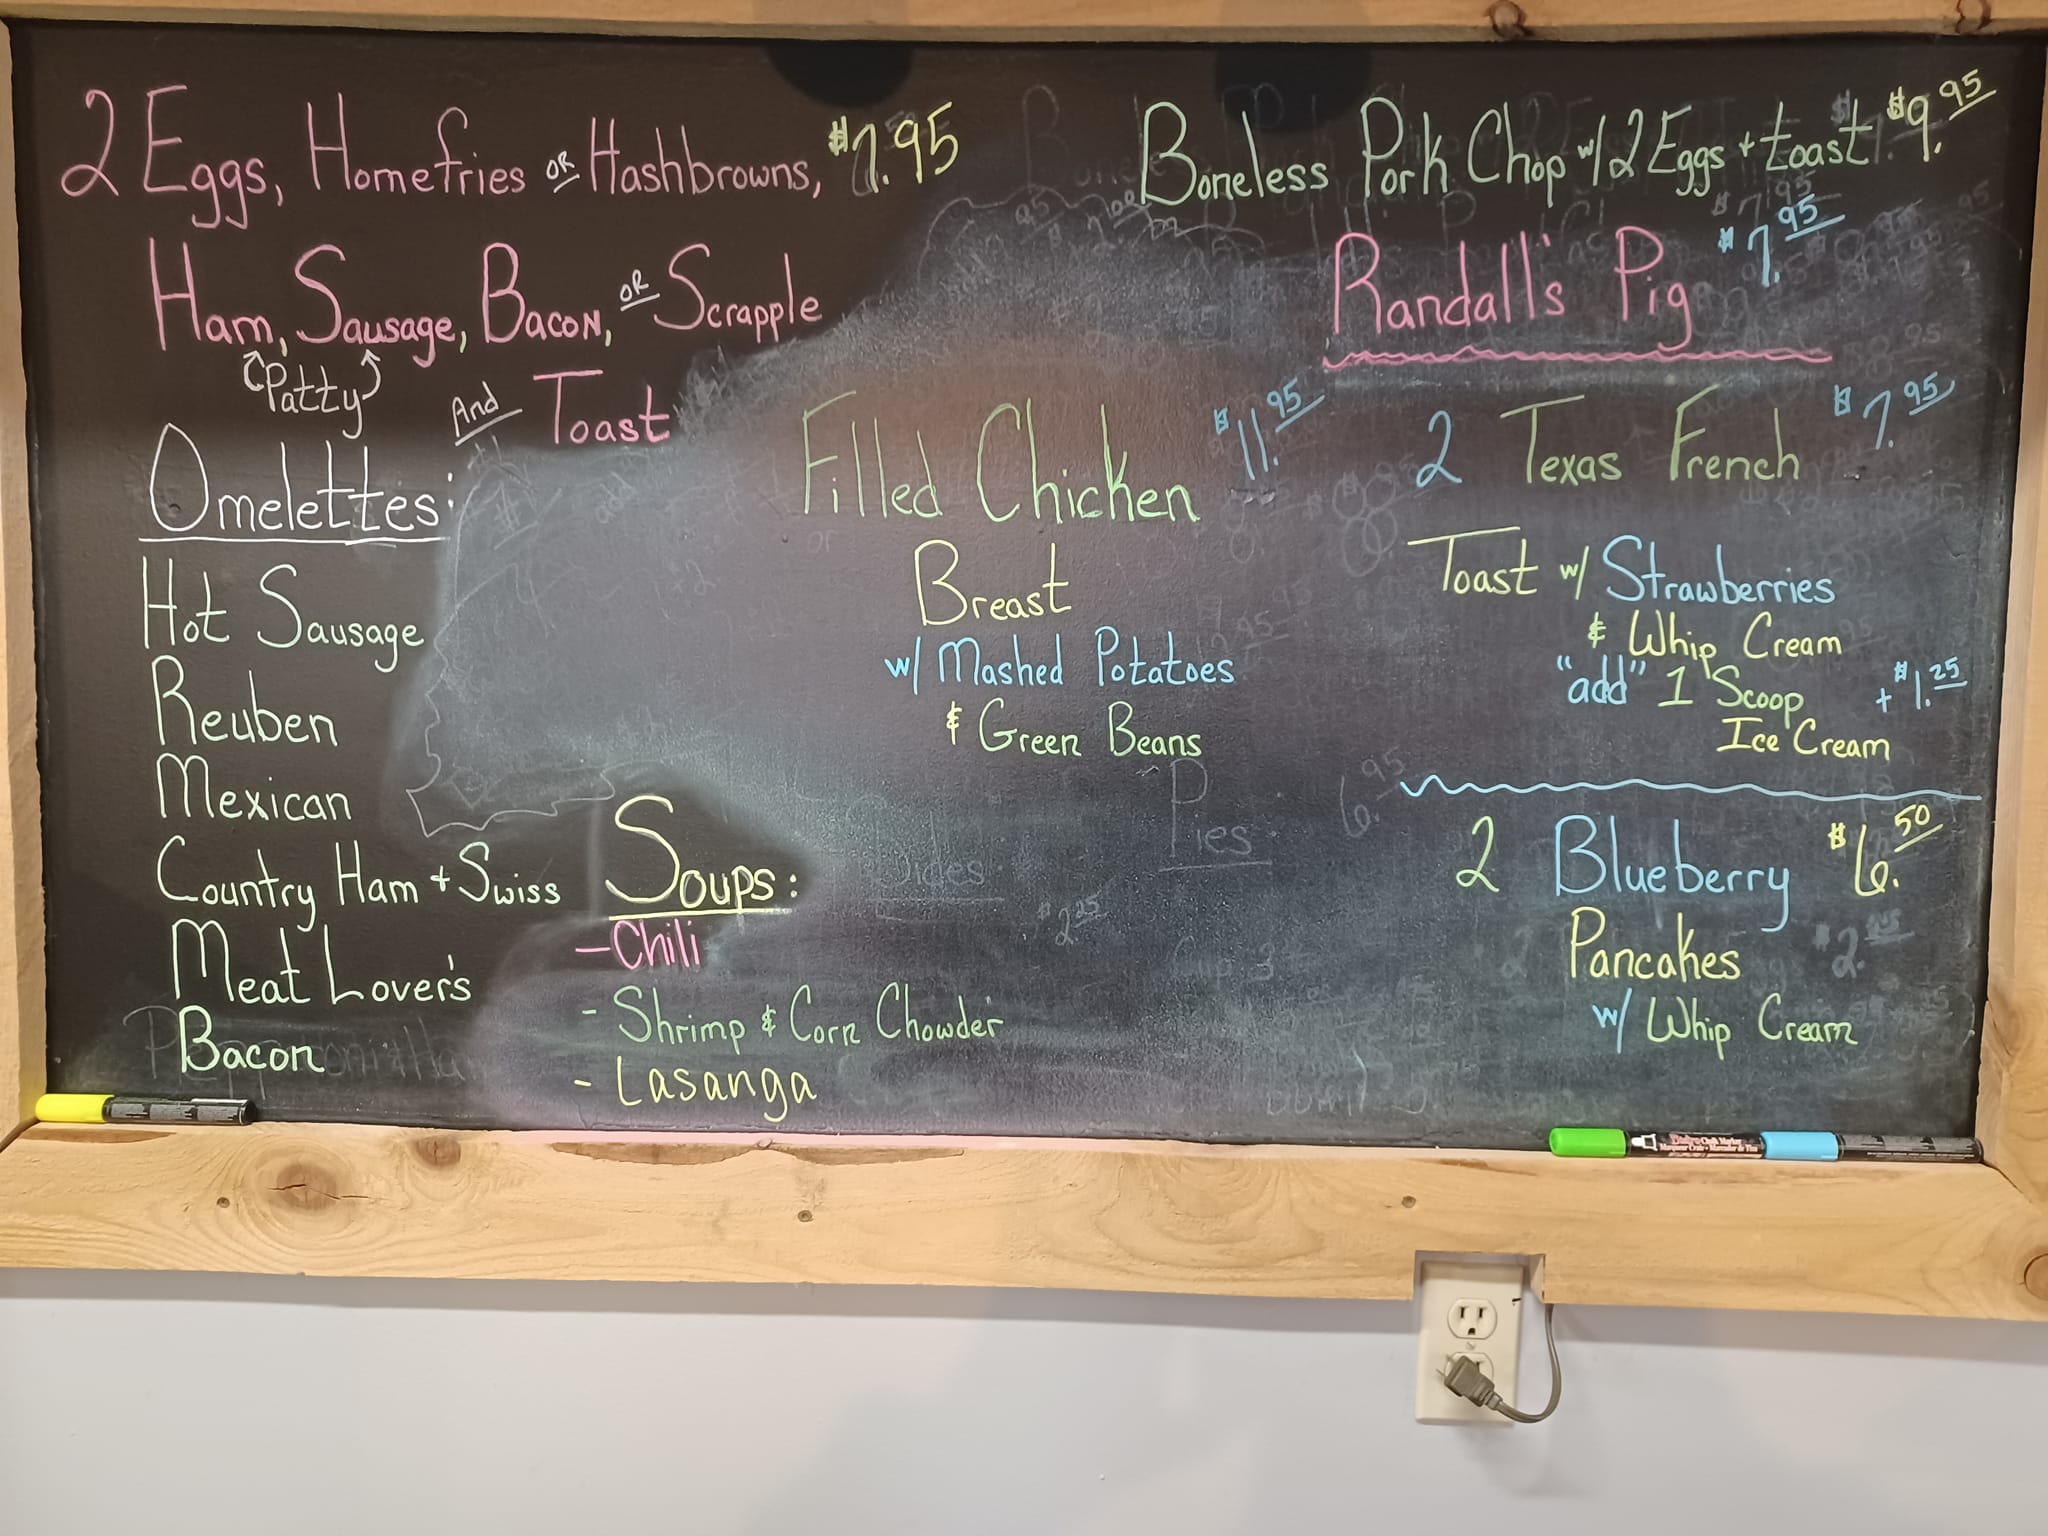 2 Eggs, Homefries OR Hashbrowns, $7.95
Ham, Sausage, Bacon, OR Scrapple
Patty
And Toast
Omelettes:
Hot Sausage
Reuben
Mexican
Country Ham + Swiss
Meat Lover's
Bacon
Soups:
- Chili
- Shrimp & Corn Chowder
- Lasanga
Filled Chicken $11.95
Breast
w/ Mashed Potatoes
& Green Beans
Pies
Sides
$2.25
6.95
Boneless Pork Chop w/ 2 Eggs + toast $9.95
Randall's Pig $7.95
2 Texas French $7.95
Toast w/ Strawberries
& Whip Cream
"add" 1 Scoop + $1.25
Ice Cream
2 Blueberry $6.50
Pancakes
w/ Whip Cream